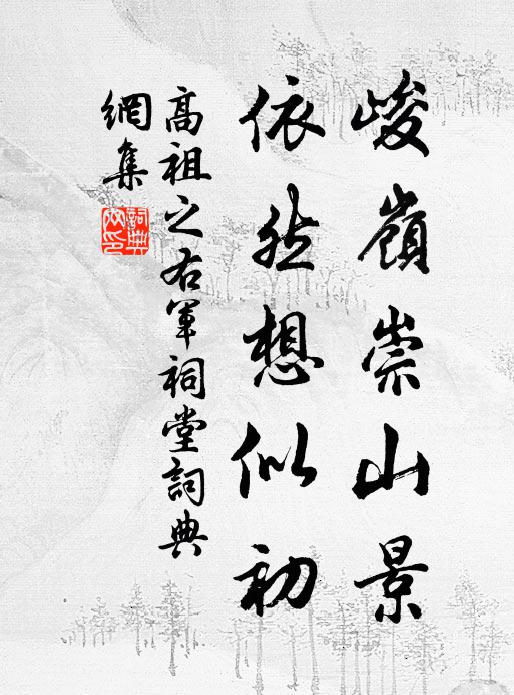 峻嶺崇山景
依然想似初
高祖之右軍祠堂詞典
網集
詞典網印